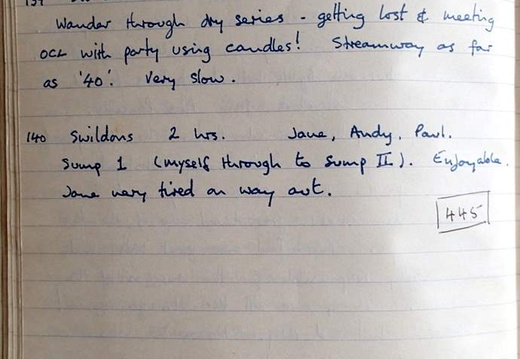 139
Wander through dry series - getting lost & meeting
OCL with party using candles! Streamway as far
as '40'. Very slow.
140 Swildons 2 hrs. Jane, Andy, Paul.
Sump 1 (myself through to Sump II). Enjoyable.
Jane very tired on way out.
445